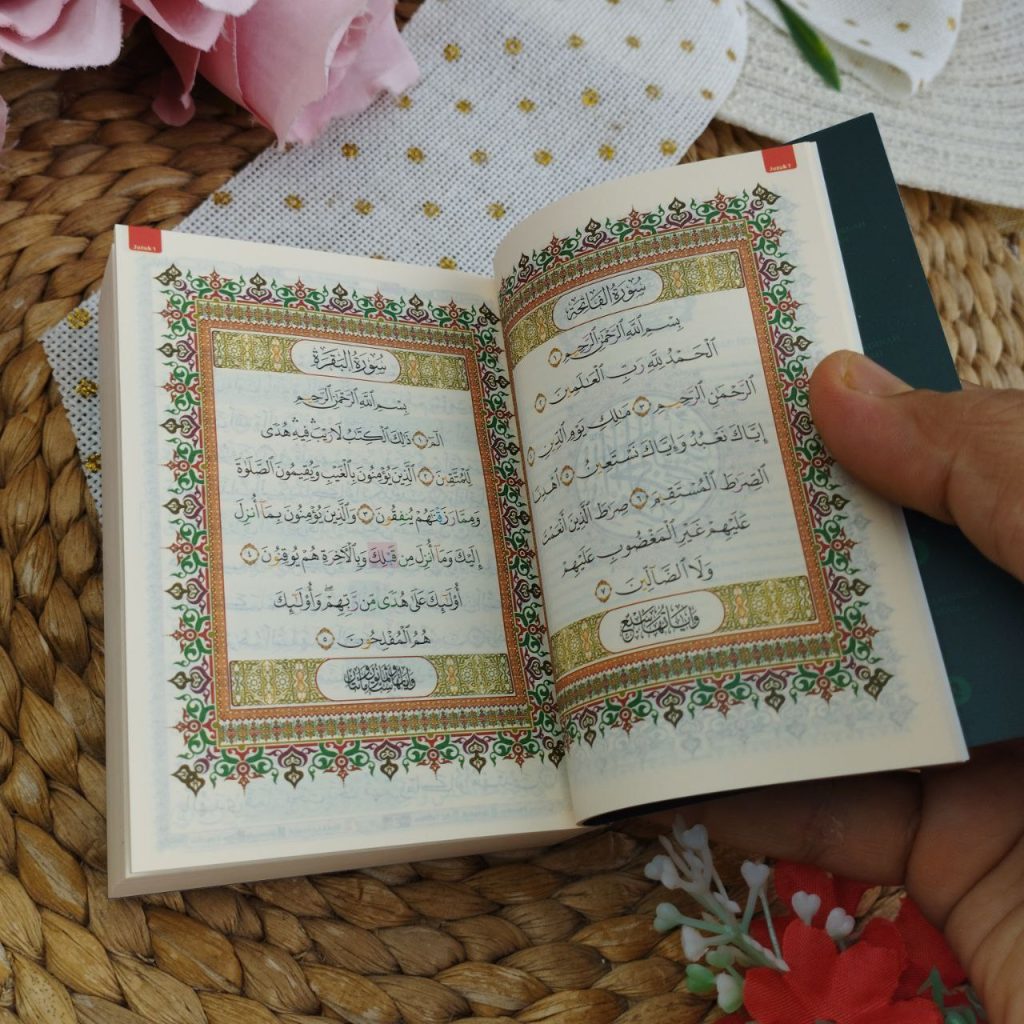 Juzuk 1
سُورَةُ الفَاتِحَةِ
بِسْمِ ٱللَّهِ ٱلرَّحْمَٰنِ ٱلرَّحِيمِ ١
ٱلْحَمْدُ لِلَّهِ رَبِّ ٱلْعَٰلَمِينَ ٢
ٱلرَّحْمَٰنِ ٱلرَّحِيمِ ٣ مَٰلِكِ يَوْمِ ٱلدِّينِ ٤
إِيَّاكَ نَعْبُدُ وَإِيَّاكَ نَسْتَعِينُ ٥ ٱهْدِنَا
ٱلصِّرَٰطَ ٱلْمُسْتَقِيمَ ٦ صِرَٰطَ ٱلَّذِينَ أَنْعَمْتَ
عَلَيْهِمْ غَيْرِ ٱلْمَغْضُوبِ عَلَيْهِمْ
وَلَا ٱلضَّآلِّينَ ٧
وآياتها سبع
Juzuk 1
سُورَةُ البَقَرَةِ
بِسْمِ ٱللَّهِ ٱلرَّحْمَٰنِ ٱلرَّحِيمِ
الٓمٓ ١ ذَٰلِكَ ٱلْكِتَٰبُ لَا رَيْبَ ۛ فِيهِ ۛ هُدًى
لِّلْمُتَّقِينَ ٢ ٱلَّذِينَ يُؤْمِنُونَ بِٱلْغَيْبِ وَيُقِيمُونَ ٱلصَّلَوٰةَ
وَمِمَّا رَزَقْنَٰهُمْ يُنفِقُونَ ٣ وَٱلَّذِينَ يُؤْمِنُونَ بِمَآ أُنزِلَ
إِلَيْكَ وَمَآ أُنزِلَ مِن قَبْلِكَ وَبِٱلْأٓخِرَةِ هُمْ يُوقِنُونَ ٤
أُو۟لَٰٓئِكَ عَلَىٰ هُدًى مِّن رَّبِّهِمْ ۖ وَأُو۟لَٰٓئِكَ
هُمُ ٱلْمُفْلِحُونَ ٥